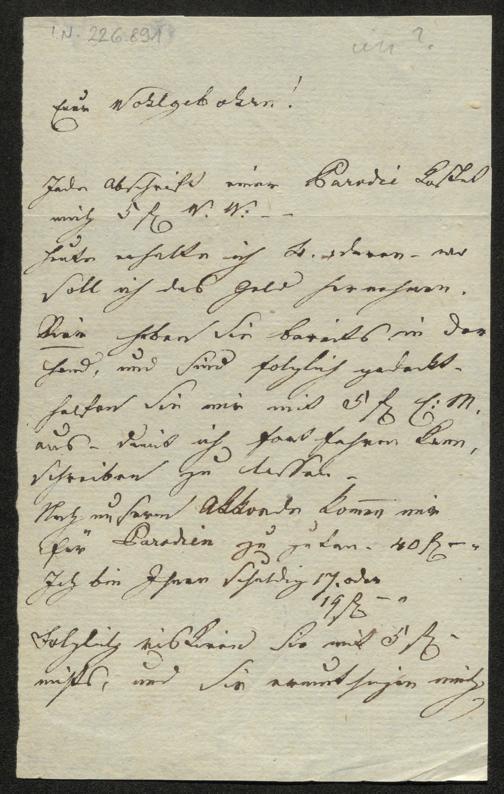 I.N. 226.891
Euer Wohlgebohrn!
Jede Abschrift einer Parodie kostet
mich 5 f W. W. –
heute erhalte ich deren – wo
soll ich das Geld hernehmen.
Vier haben Sie bereits in der
Hand, und sind folglich gedeckt –
helfen Sie mir mit 5 f C. M.
aus – damit ich fortfahren kann,
schreiben zu lassen –
Nach unserm Akkorde komen mir
für Parodien zu guten – 40 f – "
Ich bin Ihnen schuldig 17. oder
19 f – "
Folglich riskiren Sie mit 5 f –
nichts, und Sie mich